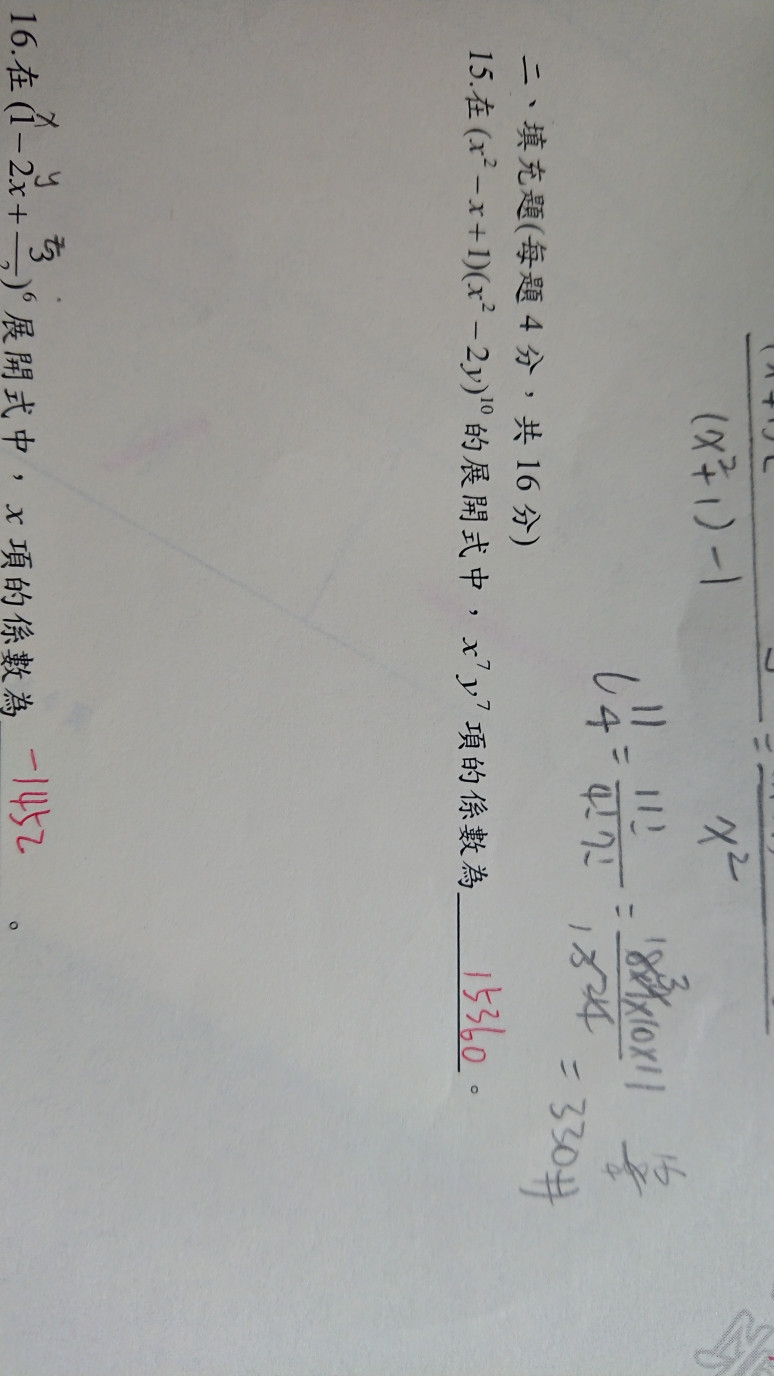 (x²+1)-1
x²
C 11 4 = 11! / 4!7! = 8×9×10×11 / 1×3×4 = 330 #
二、填充題(每題 4 分，共 16 分)
15.在(x²−x+1)(x²−2y)¹⁰的展開式中，x⁷y⁷項的係數為 15360 。
x y
16.在(1−2x+ )⁶展開式中，x項的係數為 -1452 。